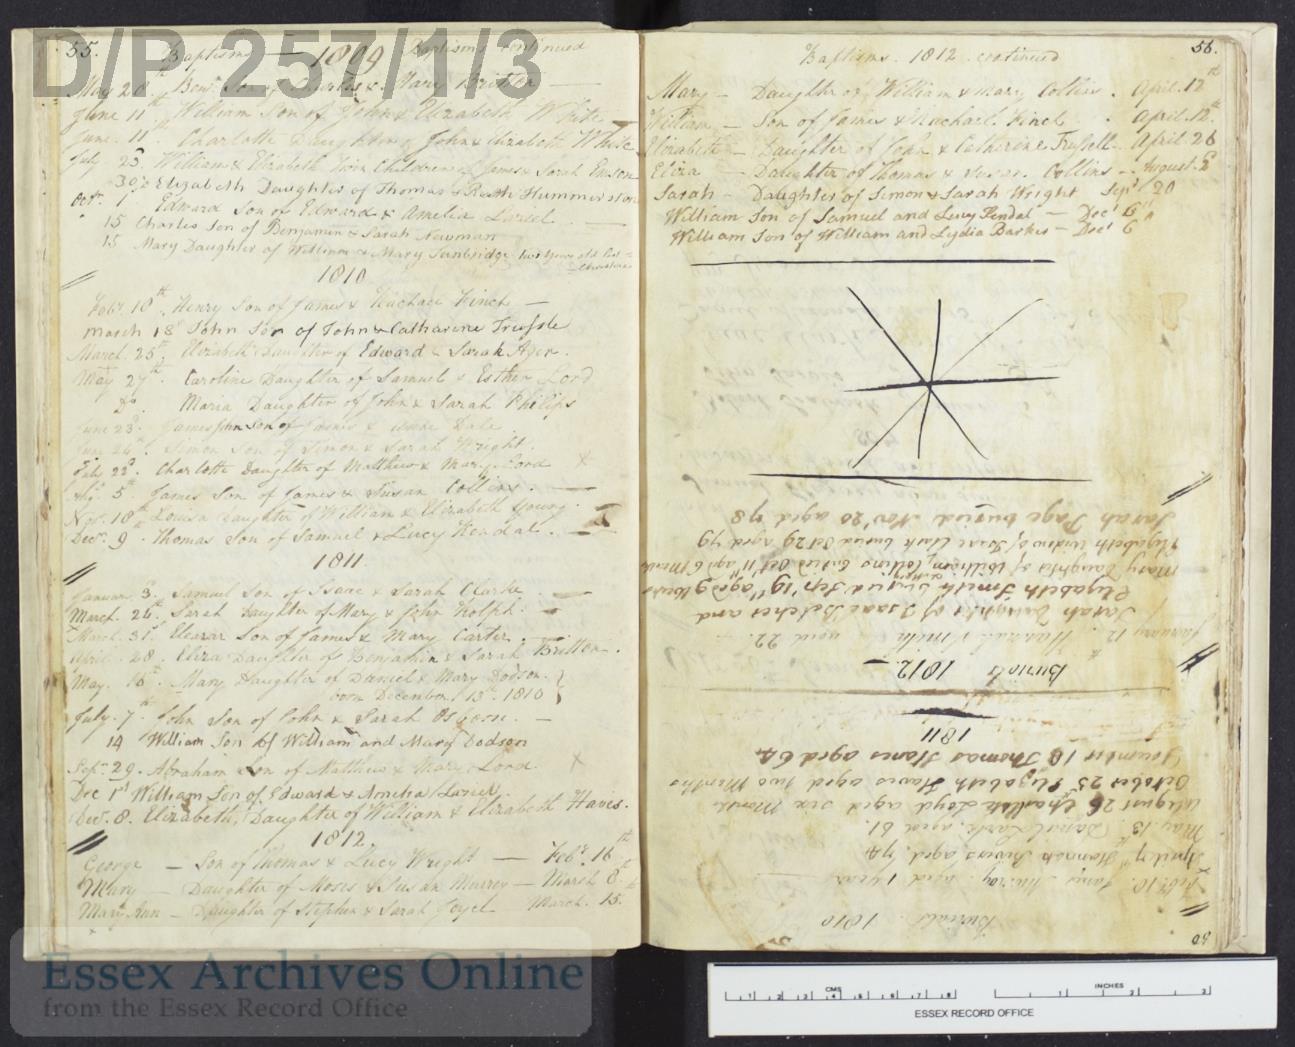 D/P 257/1/3
55.
Baptisms — 1809 Baptisms continued
May 28th Benjn. Son of Charles & Mary Britten —
June 11th William Son of John & Elizabeth White
June. 11th. Charlotte Daughter of John & Elizabeth White
July 23. William & Elizabeth Twin Children of James & Sarah Emson
30th Elizabeth Daughter of Thomas & Ruth Hummerston
Octr. 1st Edward Son of Edward & Amelia —
15 Charles Son of Benjamin & Sarah Newman
15 Mary Daughter of William & Mary Tunbridge two Years old last Christmas
1810
Feby. 10th. Henry Son of James & Rachael Finch —
March 18 John Son of John & Catharine
March. 25th. Elizabeth Daughter of Edward & Sarah Ager.
May 27th. Caroline Daughter of Samuel & Esther Lord
Do. Maria Daughter of John & Sarah Philips
June 23. James John Son of James & Dale
June 24th Simon Son of Simon & Sarah Wright.
July 22d. Charlotte Daughter of Matthew & Mary Lord ×
5th. James Son of James & Susan Collins. —
Nov. 18th Louisa Daughter of William & Elizabeth Young.
Decr. 9. Thomas Son of Samuel & Lucy Kendal. —
1811.
January 3. Samuel Son of Isaac & Sarah Clarke. —
March. 24th. Sarah Daughter of Mary & John Rolph. —
March. 31st. Eleazar Son of James & Mary Carter.
April. 28. Eliza Daughter of Benjamin & Sarah Britten.
May. Mary Daughter of Daniel & Mary Dodson.
born December 13th. 1810
July. 7th. John Son of John & Sarah —
14 William Son of William and Mary Dodson
Sepr. 29. Abraham Son of Matthew & Mary Lord ×
Dec 1st William Son of Edward & Amelia
Decr. 8. Elizabeth, Daughter of William & Elizabeth Haves.
1812
George — Son of Thomas & Lucy Wright — Feby. 16th
Mary — Daughter of Moses & Susan Murrey — March 8.th
Mary Ann — Daughter of Stephen & Sarah Joyel March. 15.
56.
Baptisms. 1812. continued
Mary — Daughter of William & Mary Collins. April. 12th
William — Son of James & Rachael. Finch. April. 12th.
Elizabeth — Daughter of John & Catherine April 26
Eliza — Daughter of Thomas & Collins. August. 2
Sarah — Daughter of Simon & Sarah Wright Sepr 20
William Son of Samuel and Lucy Kendal — Decr 6th
William Son of William and Lydia Barker — Decr 6
Sarah Page buried Novr 20 aged 78
Elizabeth Widow of Isaac Clark buried Oct 29 aged 79
Mary Daughter of William Collins buried Octr 11th aged 6 Months
Elizabeth Smith buried Sepr 19th aged 9 Hours
Sarah Daughter of Isaac Belcher and
January 12. Hannah Smith aged 22.
Burials 1812
1811
December 10 Thomas Hanes aged 64
October 25 Elizabeth Haves aged two Months
August 26 Charlotte Loyd aged six Months
May. 13. Daniel Lark, aged 61.
April 7th Hannah Bivers aged, 74
Feby. 10. James Murray. aged 1 year
Burials 1810
Essex Archives Online
from the Essex Record Office
CMS
1 2 3 4 5 6 7 8
INCHES
1 2 3
ESSEX RECORD OFFICE